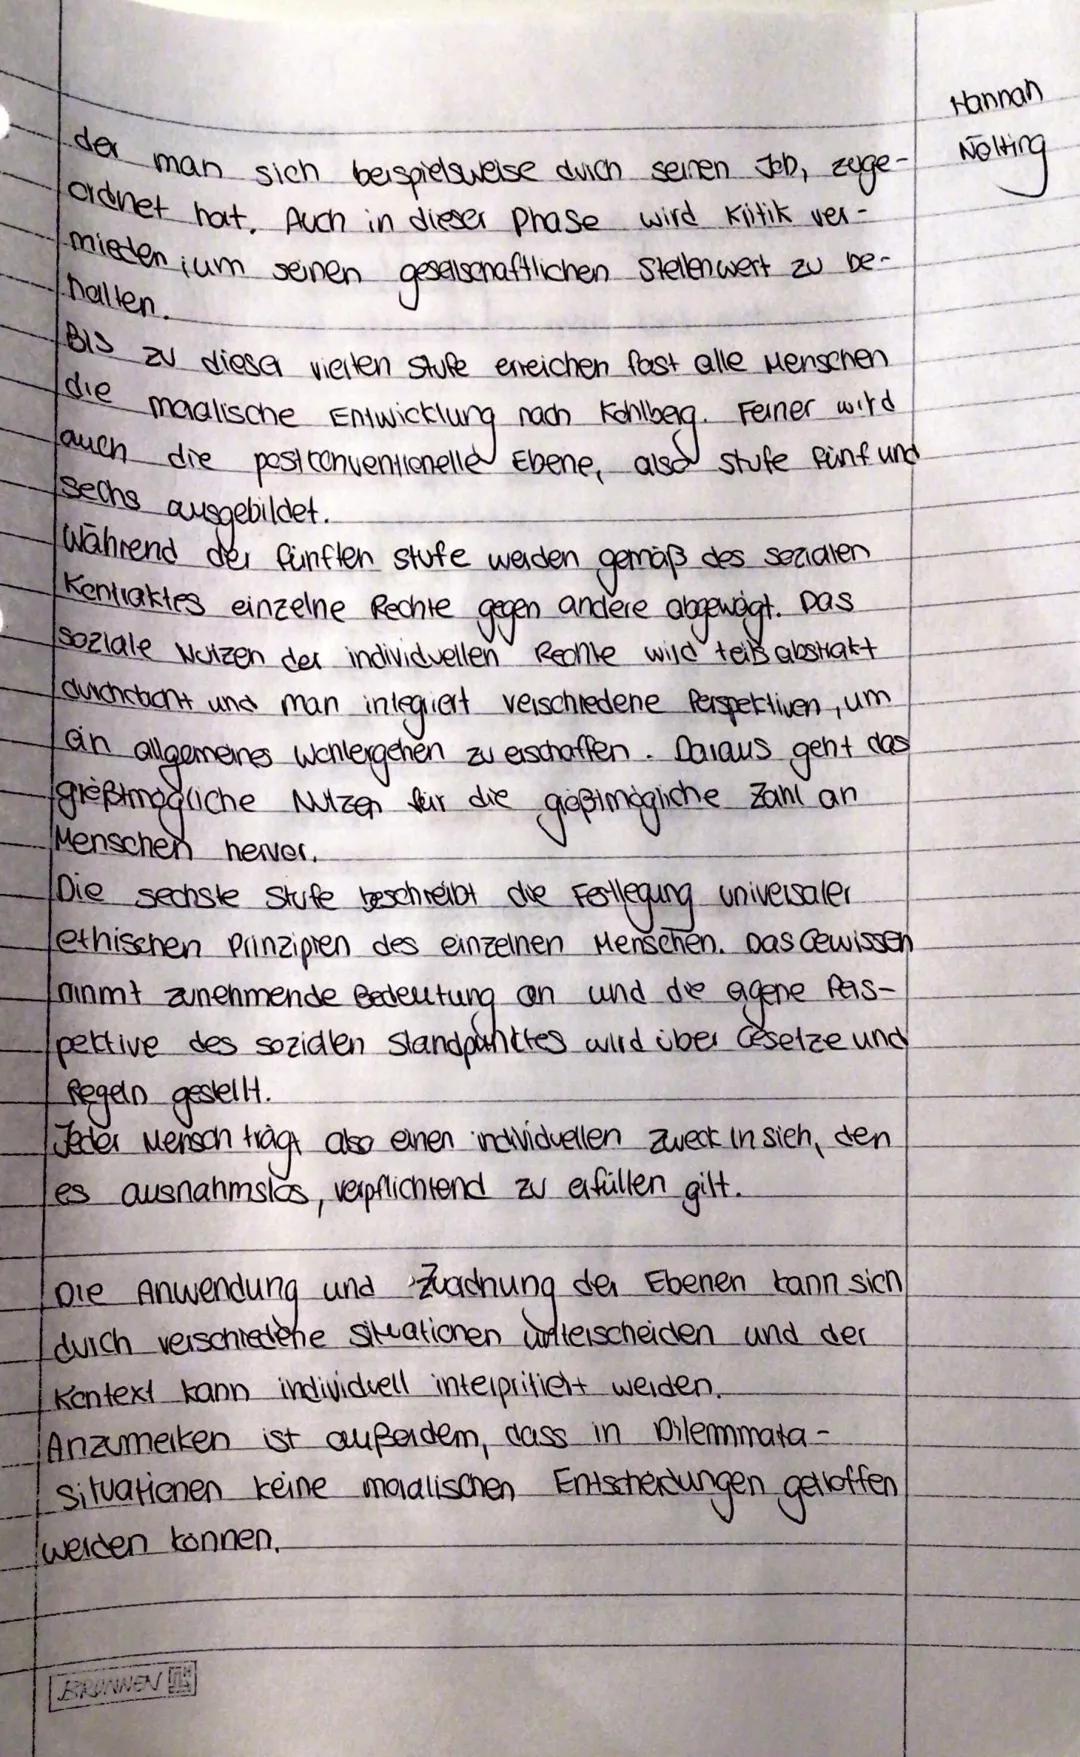 Hannah
Nölting
der man sich beispielsweise durch seinen Job, zuge-
ordnet hat. Auch in dieser Phase wird Kritik ver-
mieden, um seinen geselschaftlichen Stellenwert zu be-
halten.
Bis zu dieser vierten Stufe erreichen fast alle Menschen
die moralische Entwicklung nach Kohlberg. Ferner wird
auch die postconventionelle Ebene, also Stufe fünf und
sechs ausgebildet.
Während der fünften Stufe werden gemäß des sozialen
Kontraktes einzelne Rechte gegen andere abgewägt. Das
soziale Nutzen der individuellen Rechte wird teils abstrakt
durchdacht und man integriert verschiedene Perspektiven, um
ein allgemeines Wohlergehen zu erschaffen. Daraus geht das
größtmögliche Nutzen für die größtmögliche Zahl an
Menschen hervor.
Die sechste Stufe beschreibt die Festlegung universaler
ethischen Prinzipien des einzelnen Menschen. Das Gewissen
nimmt zunehmende Bedeutung an und die eigene Pers-
pektive des sozialen Standpunktes wird über Gesetze und
Regeln gestellt.
Jeder Mensch trägt also einen individuellen Zweck in sich, den
es ausnahmslos, verpflichtend zu erfüllen gilt.
Die Anwendung und Zuordnung der Ebenen kann sich
durch verschiedene Situationen unterscheiden und der
Kontext kann individuell interpritiert werden.
Anzumerken ist außerdem, dass in Dilemmata-
situationen keine moralischen Entscheidungen getroffen
werden können.
BRUNNEN